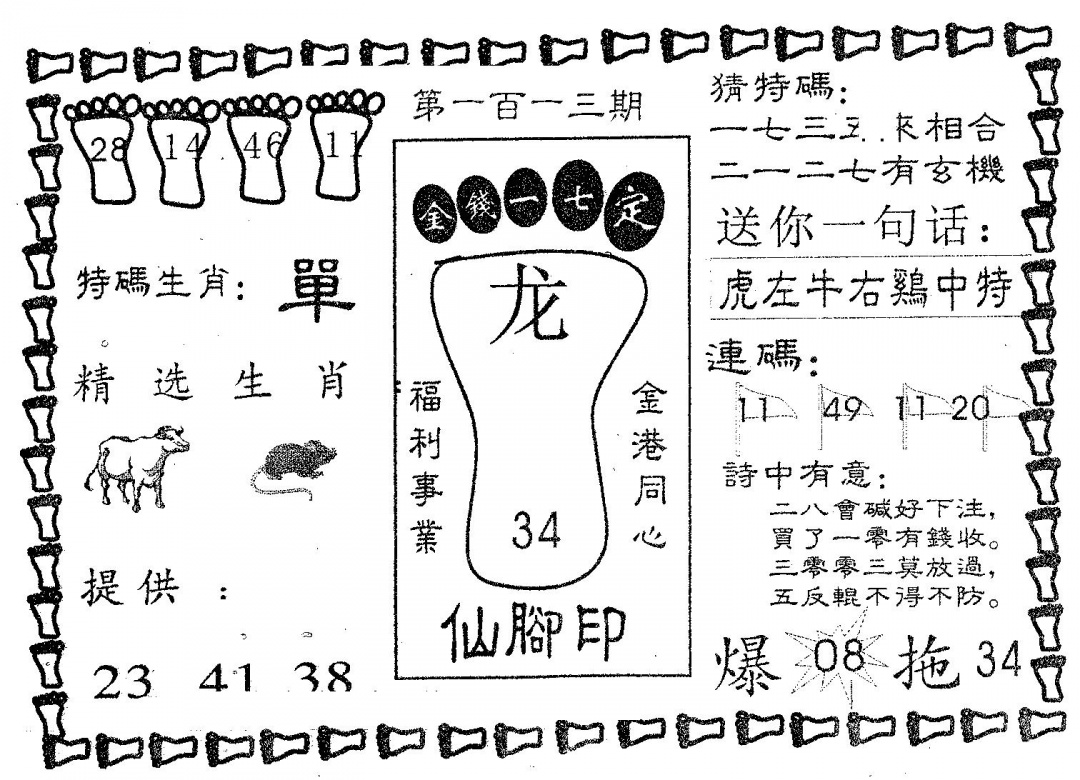 28 14 46 11
特碼生肖： 單
精选生肖
提供：
23 41 38
第一百一三期
金錢一七定
龙
福利事業
金港同心
34
仙腳印
猜特碼：
一七三五 相合
二一二七有玄機
送你一句话：
虎左牛右鷄中特
連碼：
11 49 11 20
詩中有意：
二八會碱好下注，
買了一零有錢收。
三零零三莫放過，
五反輥不得不防。
爆 08 拖 34